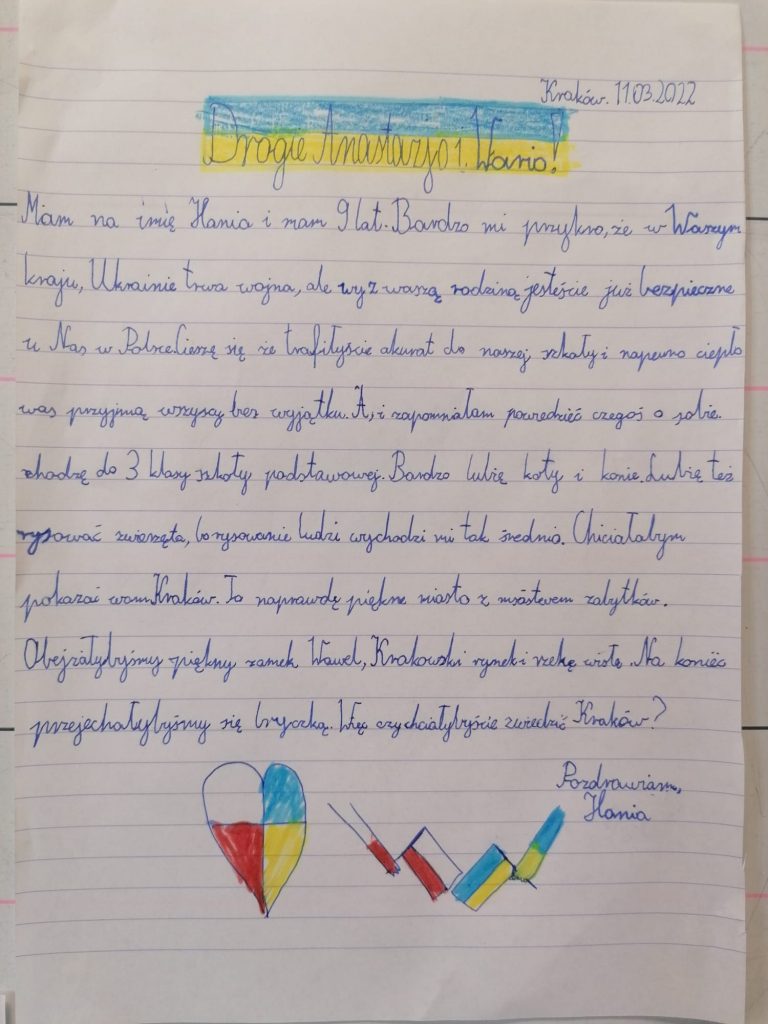 Kraków. 11.03.2022
Drogie Anastazjo i Wario!
Mam na imię Hania i mam 9 lat. Bardzo mi przykro, że w Waszym
kraju, Ukrainie trwa wojna, ale wy z waszą rodziną jesteście już bezpieczne
u Nas w Polsce. Cieszę się że trafiłyście akurat do naszej szkoły i napewno ciepło
was przyjmą wszyscy bez wyjątku. A, i zapomniałam powiedzieć czegoś o sobie.
chodzę do 3 klasy szkoły podstawowej. Bardzo lubię koty i konie. Lubię też
rysować zwierzęta, bo rysowanie ludzi wychodzi mi tak średnio. Chciałabym
pokazać wam Kraków. To naprawdę piękne miasto z zabytków.
Obejrzałybyśmy piękny zamek Wawel, Krakowski rynek i rzekę wisłę. Na koniec
przejechałybyśmy się bryczką. Więc czy chciałybyście zwiedzić Kraków?
Pozdrawiam,
Hania